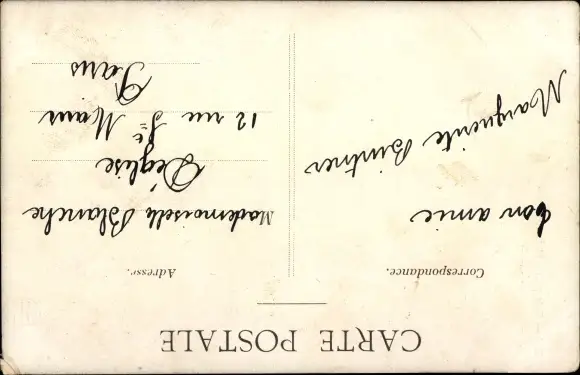 CARTE POSTALE
Correspondance.
ton amie
Marguerite Bintner
Adresse.
Mademoiselle Blanche
Déglise
12 rue St Maur
Paris